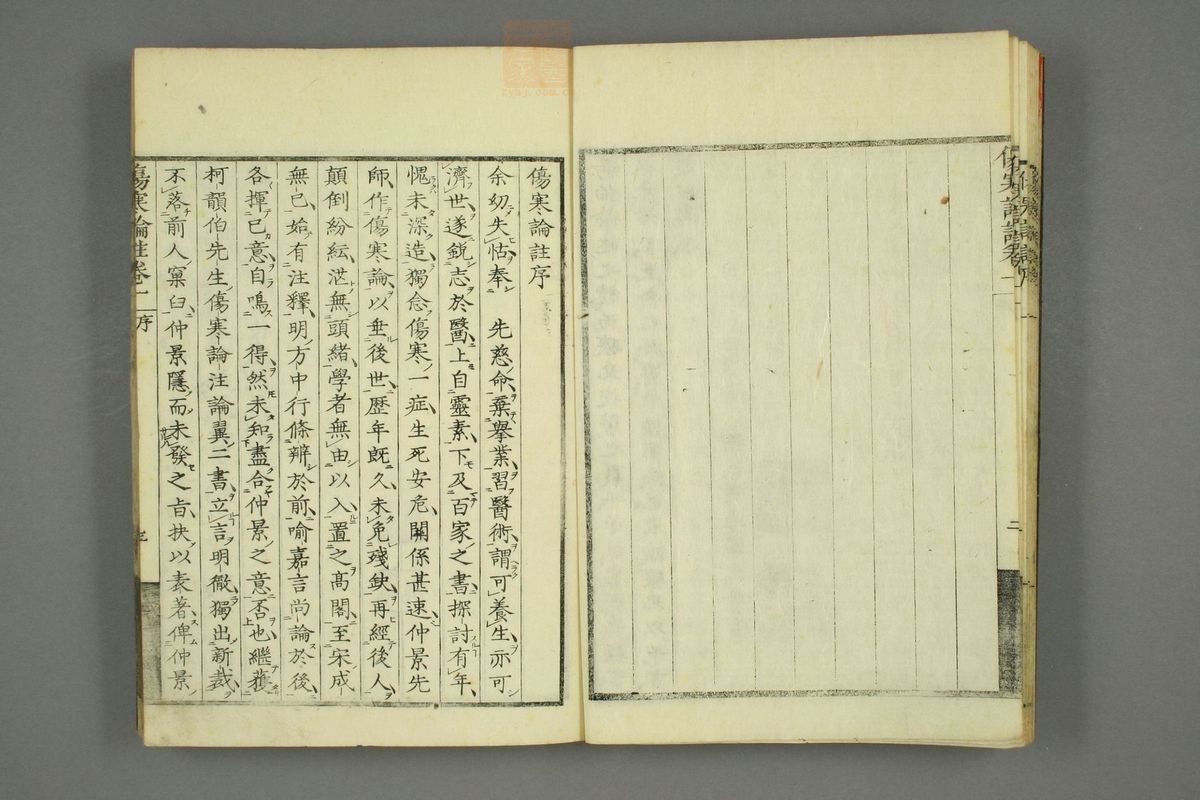 傷寒論註序
余幼失怙奉　先慈命棄舉業習醫術謂可養生亦可
濟世遂銳志於醫上自靈素下及百家之書探討有年
愧未深造獨念傷寒一症生死安危關係甚速仲景先
師作傷寒論以垂後世歷年既久未免殘缺再經後人
顛倒紛紜茫無頭緒學者無由以入置之高閣至宋成
無己始有注釋明方中行條辨於前喻嘉言尚論於後
各揮己意自鳴一得然未知盡合仲景之意否也繼獲
柯韻伯先生傷寒論注論翼二書立言明徹獨出新裁
不落前人窠臼仲景隱而未發之旨抉以表著俾仲景
傷寒論註卷一 序
二
zysj.com.cn